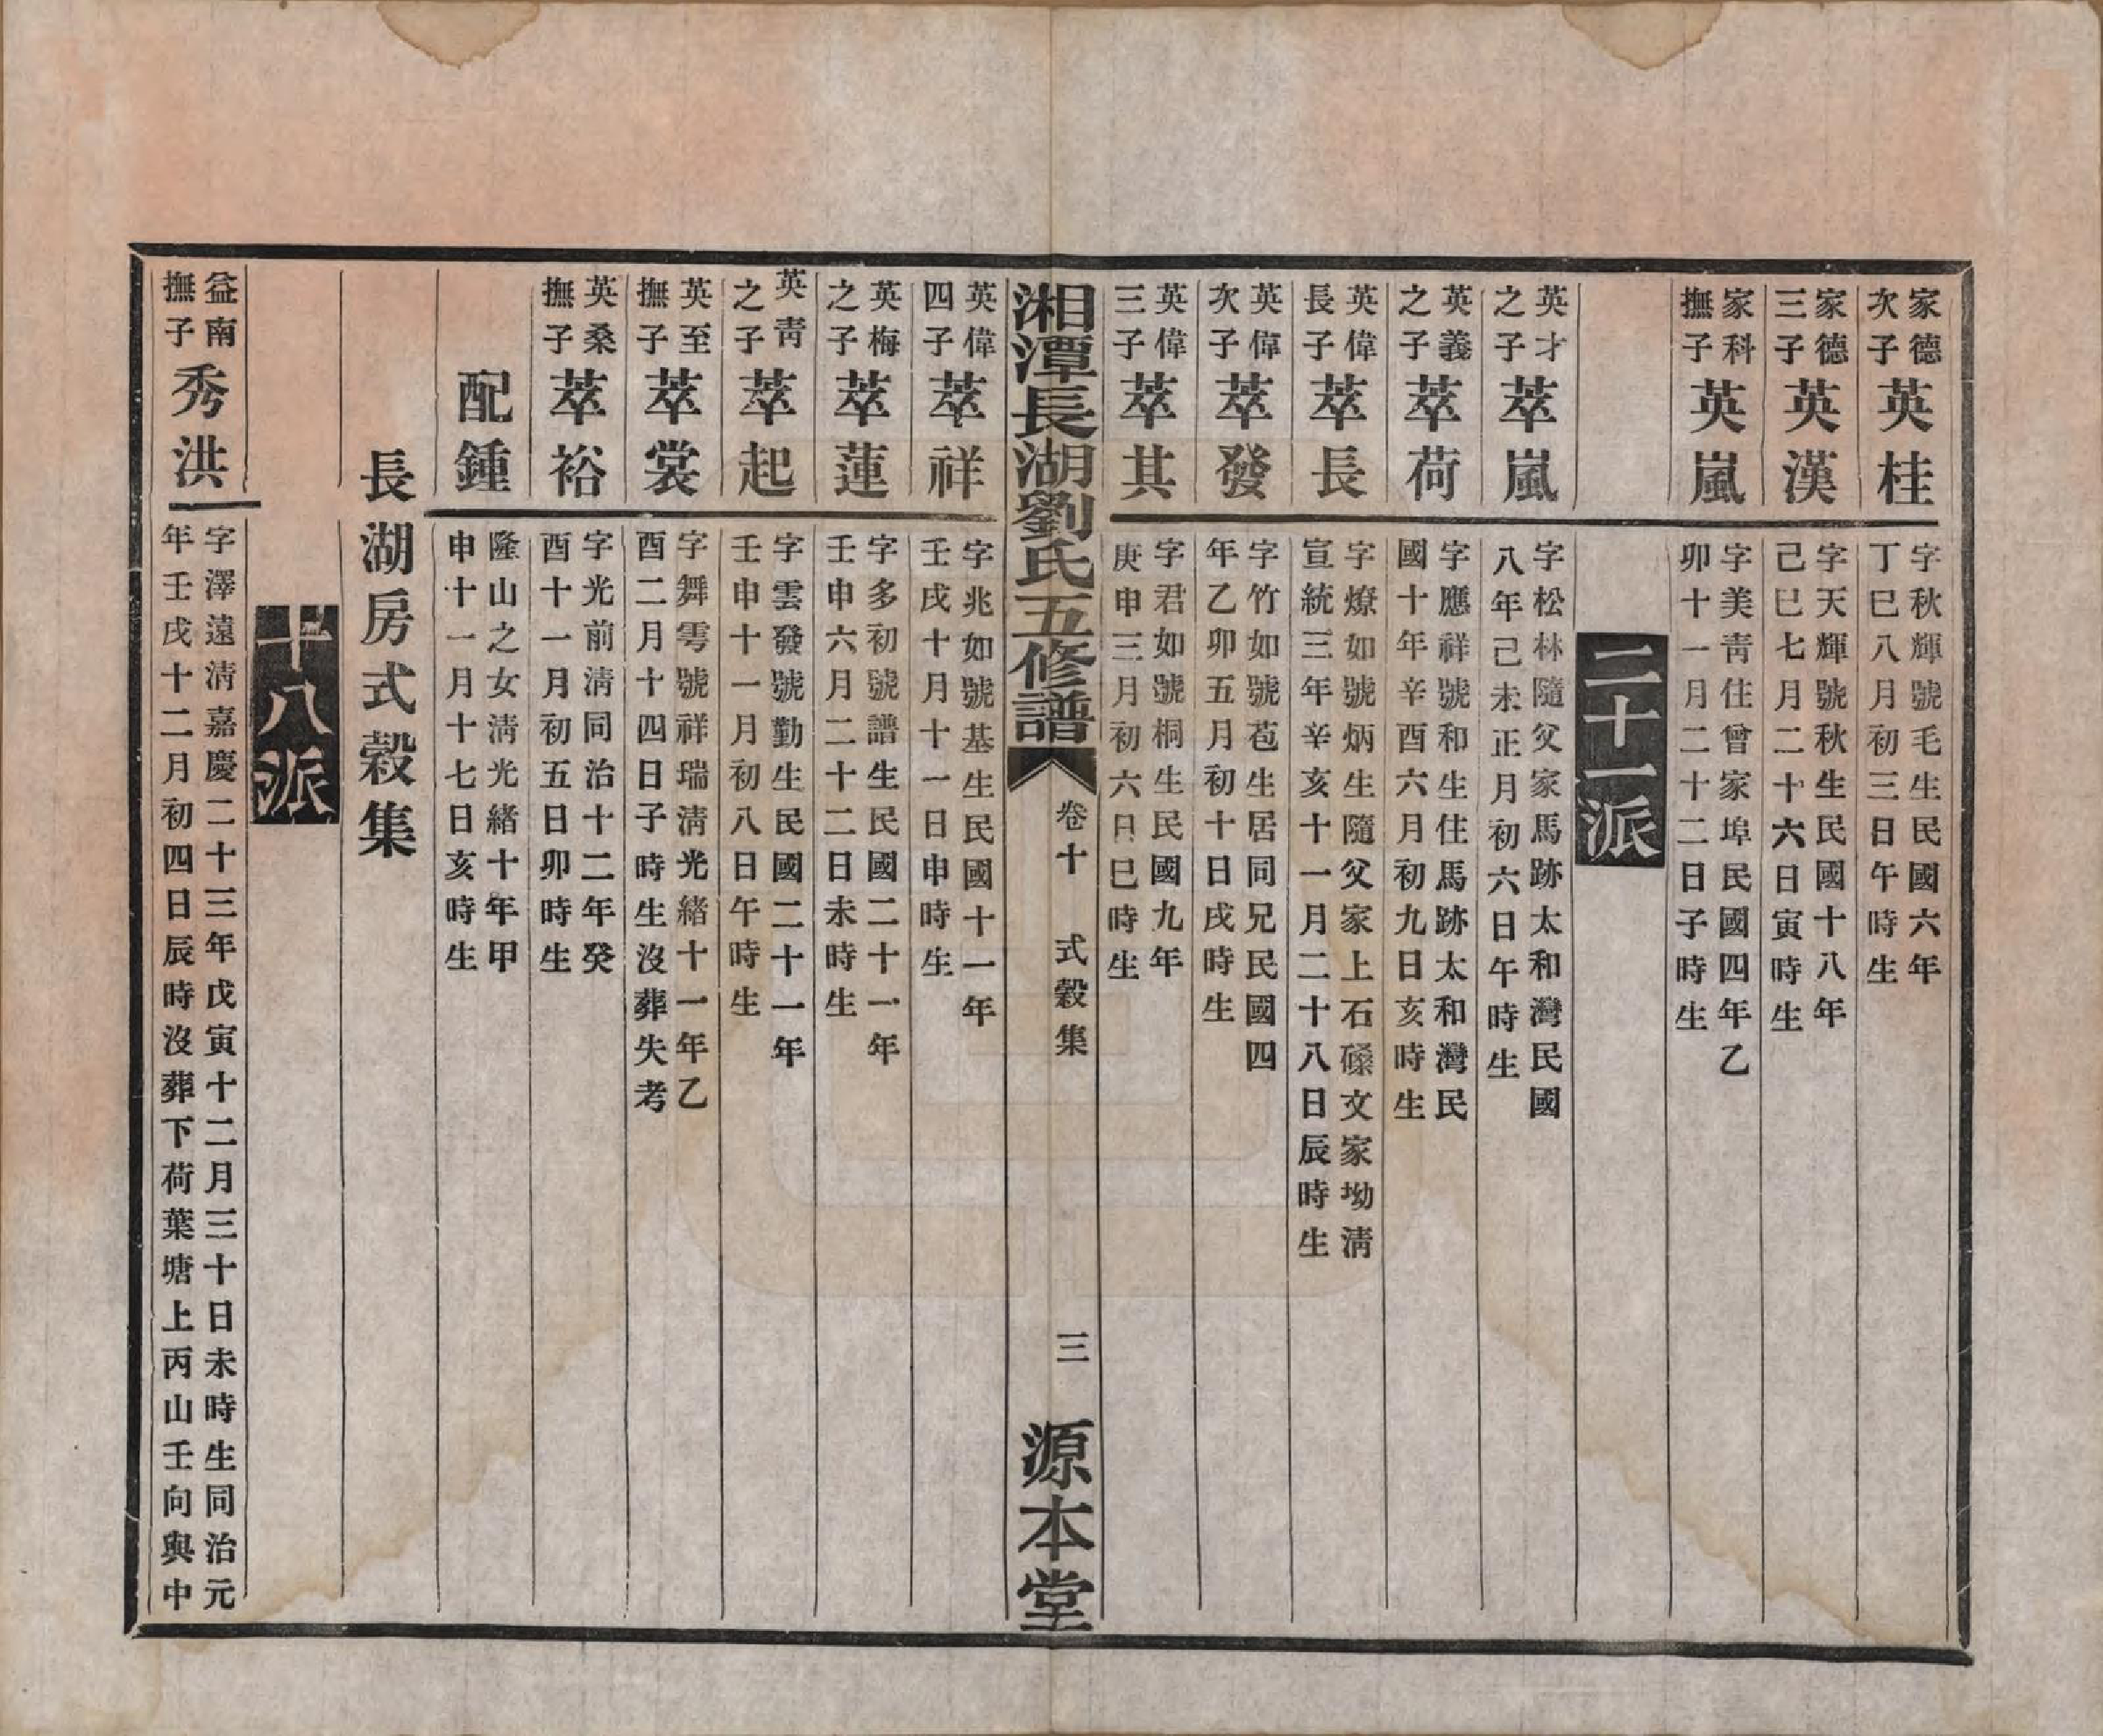 家德
次子
英桂
字秋輝號毛生民國六年
丁巳八月初三日午時生
家德
三子
英漢
字天輝號秋生民國十八年
己巳七月二十六日寅時生
家科
撫子
英嵐
字美靑住曾家埠民國四年乙
卯十一月二十二日子時生
二十一派
英才
之子
萃嵐
字松林隨父家馬跡太和灣民國
八年己未正月初六日午時生
英義
之子
萃荷
字應祥號和生住馬跡太和灣民
國十年辛酉六月初九日亥時生
英偉
長子
萃長
字燎如號炳生隨父家上石磉文家坳淸
宣統三年辛亥十一月二十八日辰時生
英偉
次子
萃發
字竹如號苞生居同兄民國四
年乙卯五月初十日戌時生
英偉
三子
萃其
字君如號桐生民國九年
庚申三月初六日巳時生
湘潭長湖劉氏五修譜
卷十 式穀集
三
源本堂
英偉
四子
萃祥
字兆如號基生民國十一年
壬戌十月十一日申時生
英梅
之子
萃蓮
字多初號譜生民國二十一年
壬申六月二十二日未時生
英靑
之子
萃起
字雲發號勤生民國二十一年
壬申十一月初八日午時生
英至
撫子
萃裳
字舞雩號祥瑞淸光緒十一年乙
酉二月十四日子時生沒葬失考
英桑
撫子
萃裕
字光前淸同治十二年癸
酉十一月初五日卯時生
配鍾
隆山之女淸光緒十年甲
申十一月十七日亥時生
長湖房式穀集
十八派
益南
撫子
秀洪
字澤遠淸嘉慶二十三年戊寅十二月三十日未時生同治元
年壬戌十二月初四日辰時沒葬下荷葉塘上丙山壬向與中